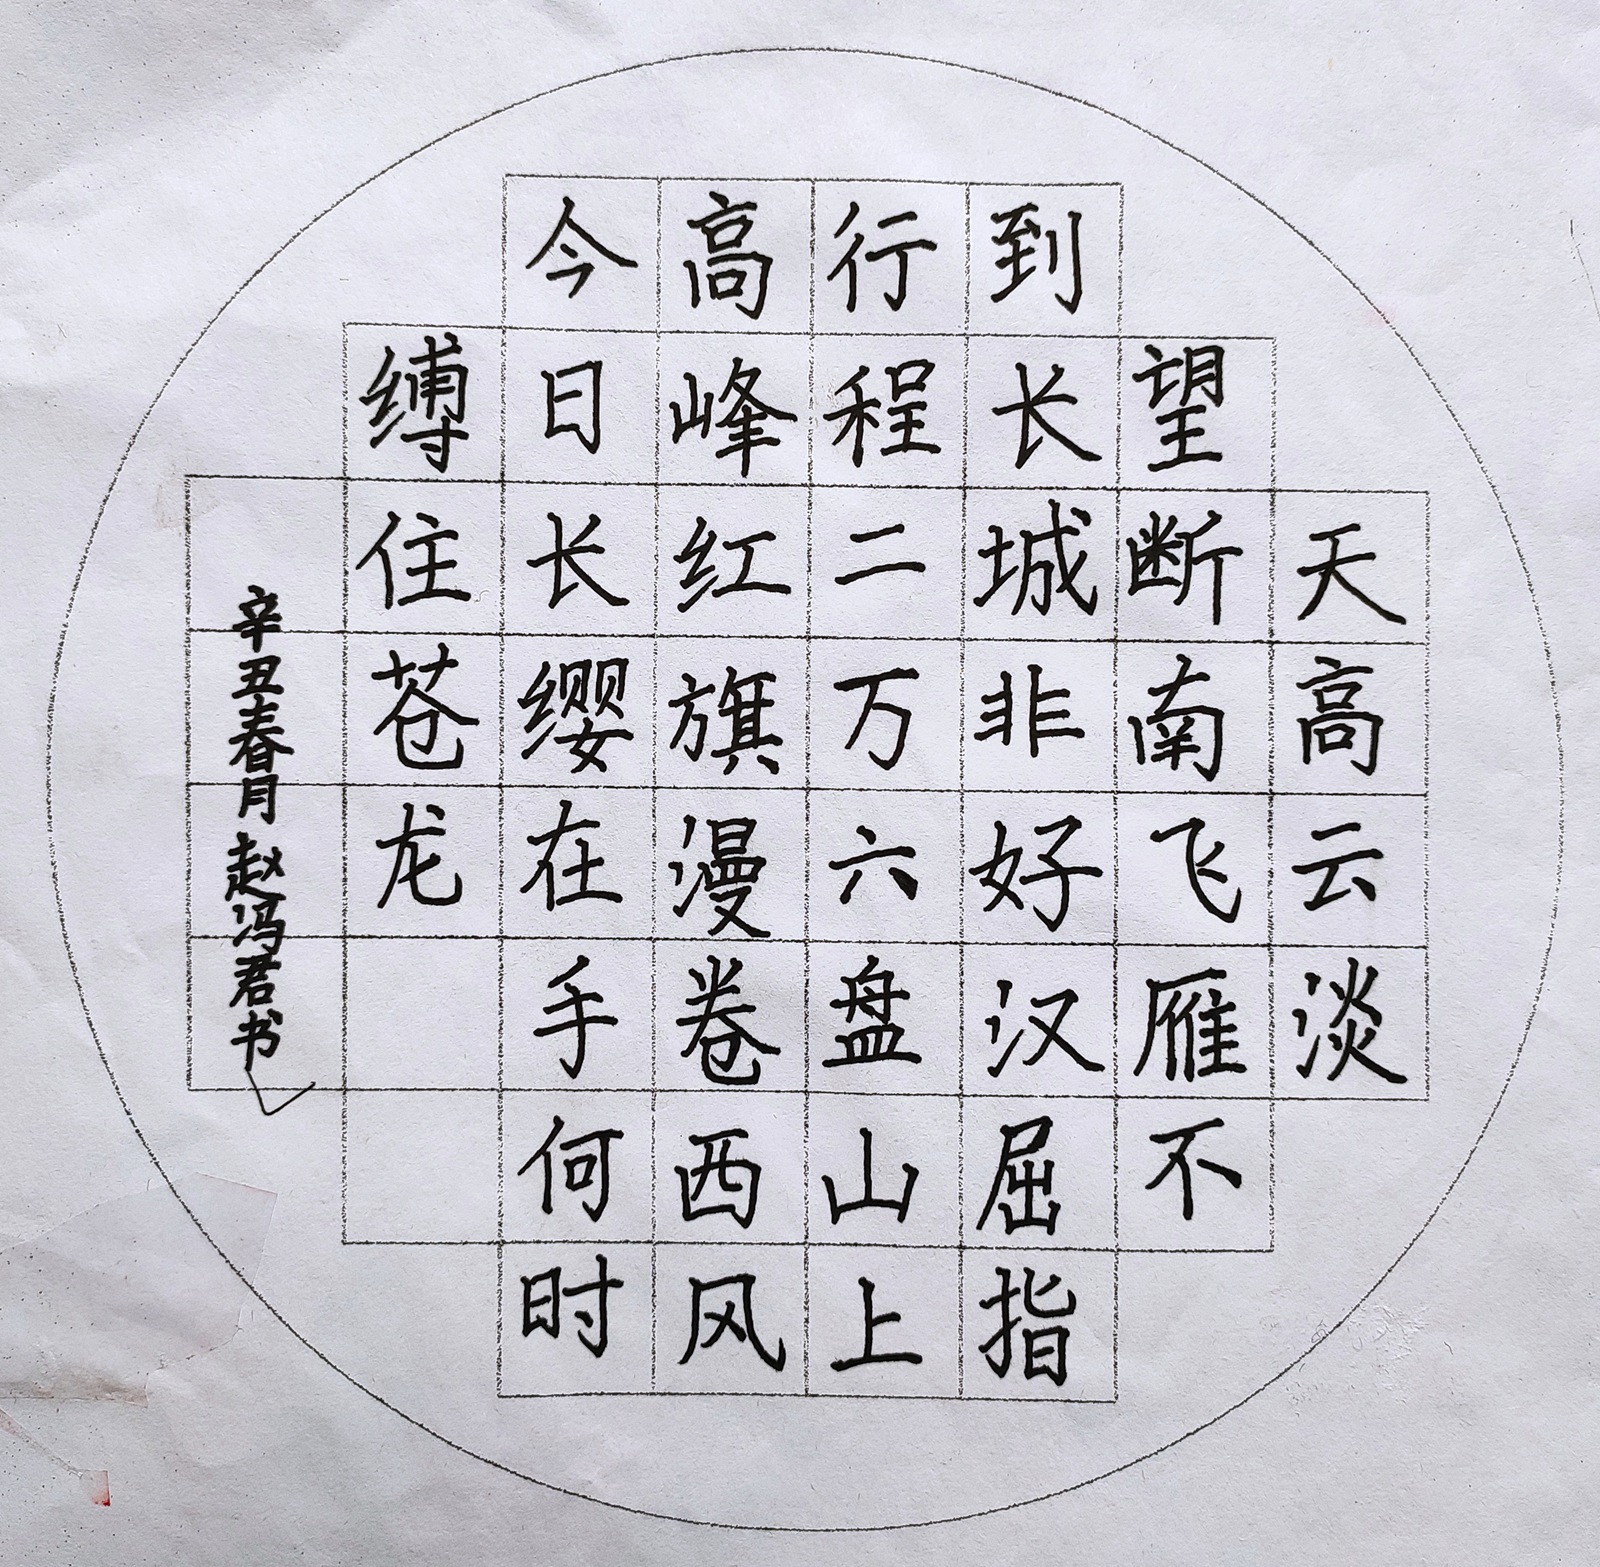 天高云淡
望断南飞雁不
到长城非好汉屈指
行程二万六盘山上
高峰红旗漫卷西风
今日长缨在手何时
缚住苍龙
辛丑春月赵冯君书